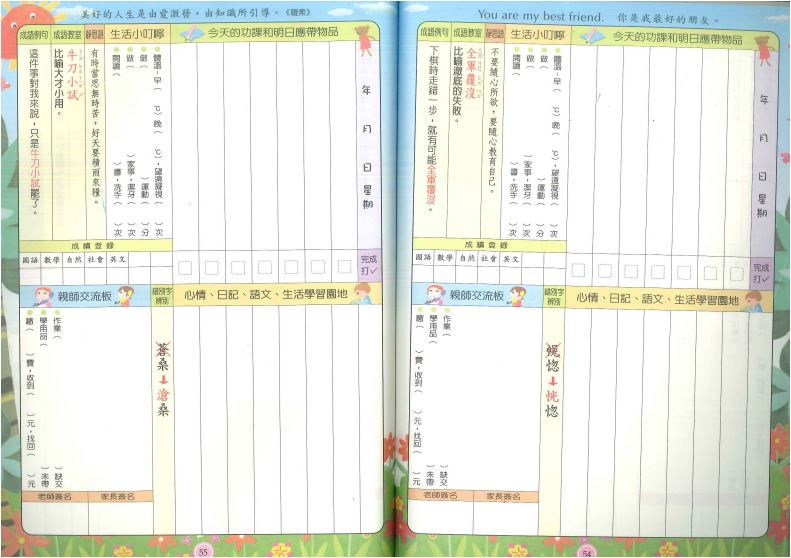 You are my best friend. 你是我最好的朋友。
年 月 日 星期
今天的功課和明日應帶物品
完成打✓
生活小叮嚀
體溫-早( ℃)晚( ℃),望遠凝視( )次
做( )運動( )分
做( )家事,潔牙( )次
閱讀( )書,洗手( )次
靜思語
不要隨心所欲,要隨心教育自己。
成語教室
全軍覆沒
比喻徹底的失敗。
成語例句
下棋時走錯一步,就有可能全軍覆沒。
成績登錄
國語 數學 自然 社會 英文
心情、日記、語文、生活學習園地
錯別字辨別
惚→恍惚
親師交流板
作業( )缺交
學用品( )未帶
繳( )費,收到( )元,找回( )元
老師簽名 家長簽名
54
美好的人生是由愛激發,由知識所引導。《羅素》
年 月 日 星期
今天的功課和明日應帶物品
完成打✓
生活小叮嚀
體溫-早( ℃)晚( ℃),望遠凝視( )次
做( )運動( )分
做( )家事,潔牙( )次
閱讀( )書,洗手( )次
靜思語
有時當思無時苦,好天要積雨來糧。
成語教室
牛刀小試
比喻大才小用。
成語例句
這件事對我來說,只是牛刀小試罷了。
成績登錄
國語 數學 自然 社會 英文
心情、日記、語文、生活學習園地
錯別字辨別
蒼桑→滄桑
親師交流板
作業( )缺交
學用品( )未帶
繳( )費,收到( )元,找回( )元
老師簽名 家長簽名
55